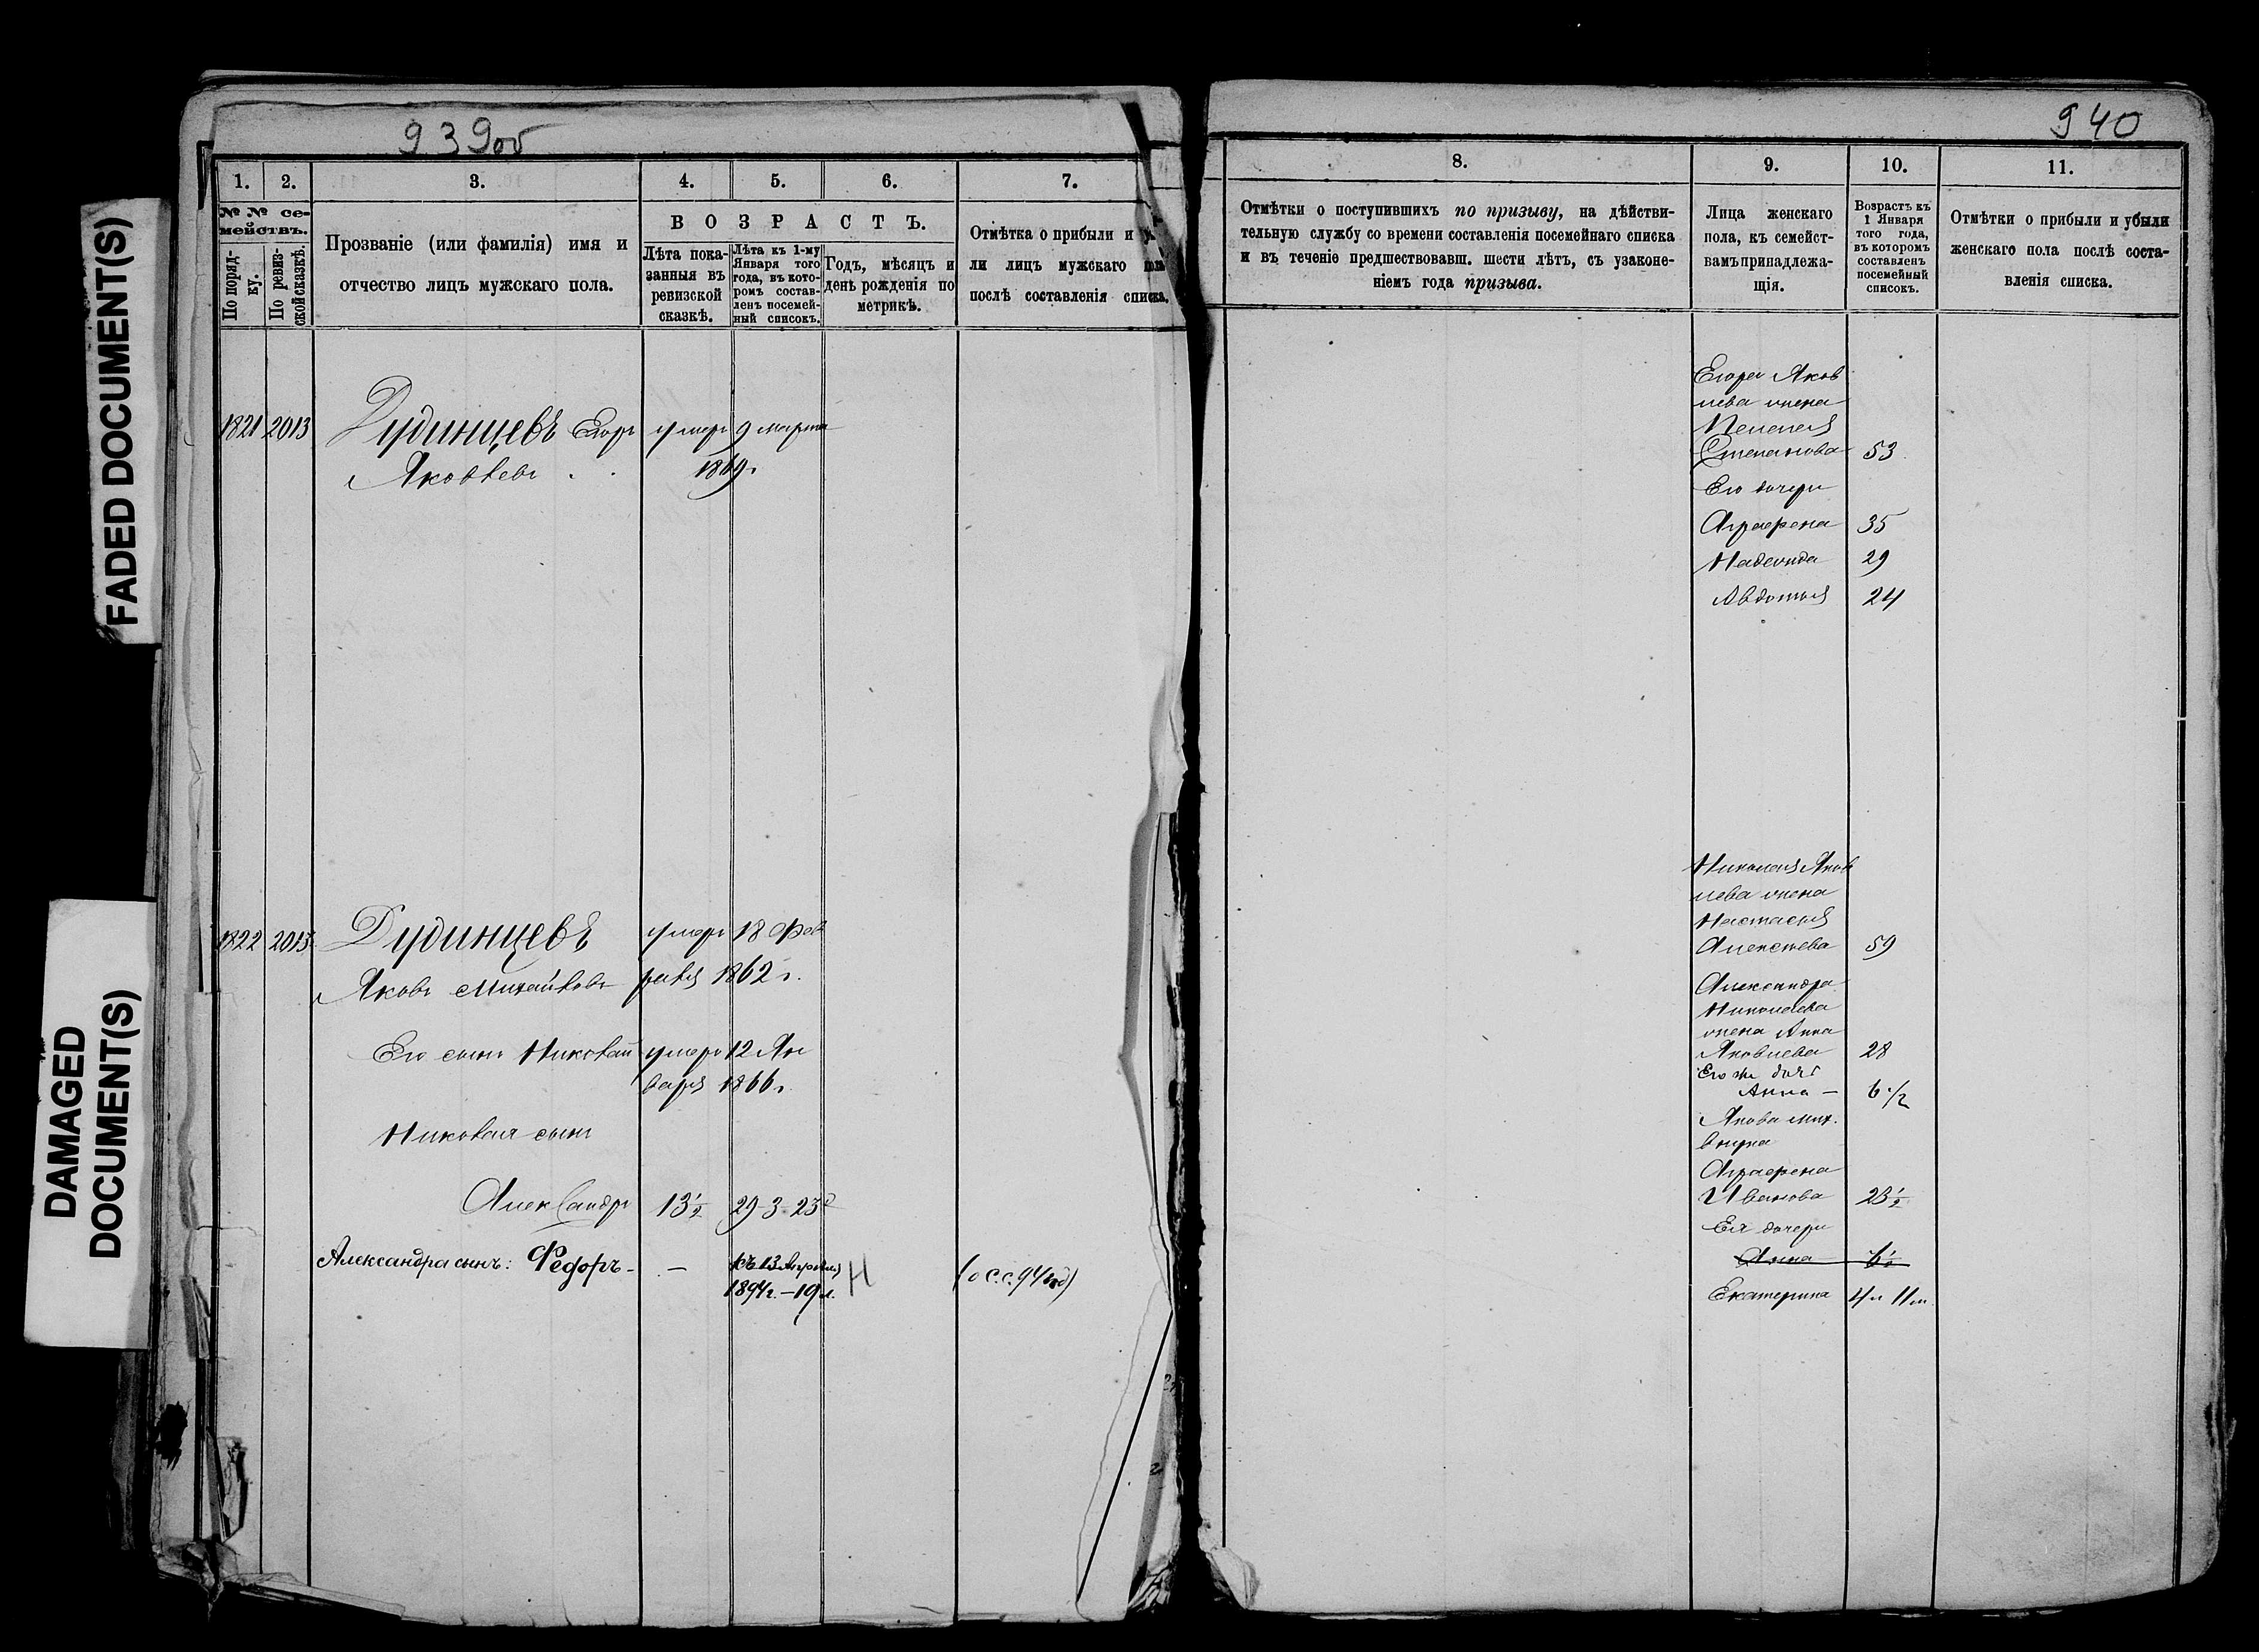 FADED DOCUMENT(S)
DAMAGED
DOCUMENT(S)
939об
1.
2.
3.
4.
5.
6.
7.
№ № се-
мействъ.
По поряд-
ку.
По ревиз-
ской сказкѣ.
Прозваніе (или фамилія) имя и
отчество лицъ мужскаго пола.
ВОЗРАСТЪ.
Лѣта пока-
занныя въ
ревизской
сказкѣ.
Лѣта къ 1-му
Января того
года, въ кото-
ромъ состав-
ленъ посемей-
ный списокъ.
Годъ, мѣсяцъ и
день рожденія по
метрикѣ.
Отмѣтка о прибыли и у
ли лицъ мужскаго
послѣ составленія списка.
1821 2013 Дудинцевъ Егоръ умеръ 9 марта
Яковлевъ 1869 г.
1822 2013 Дудинцевъ умеръ 18 Фев
Яковъ Михайловъ раля 1862 г.
Его сынъ Николай умеръ 12 Ян
варя 1866 г.
Николая сынъ
Александръ 13½ 29-3-23
Александра сынъ: Федоръ - — къ 13 Апрѣля
1894 г. – 19 л. Н (о с.с. 94 год)
940
8.
9.
10.
11.
Отмѣтки о поступившихъ по призыву, на дѣйстви-
тельную службу со времени составленія посемейнаго списка
и въ теченіе предшествовавш. шести лѣтъ, съ узаконе-
ніемъ года призыва.
Лица женскаго
пола, къ семейст-
вамъ принадлежа-
щія.
Возрастъ къ
1 Января
того года,
въ которомъ
составленъ
посемейный
списокъ.
Отмѣтки о прибыли и убыли
женскаго пола послѣ соста-
вленія списка.
Егора Яков
лева жена
Пелагея
Степанова 53
Его дочери
Аграфена 35
Надежда 29
Авдотья 24
Николая Яков
лева жена
Настасья
Алексѣева 59
Александра
Николаева
жена Анна
Яковлева 28
Его же дочь
Анна — 6½
Якова Мих.
внучка
Аграфена
Иванова 23½
Ея дочери
Анна 6½
Екатерина 4 г 11 м.